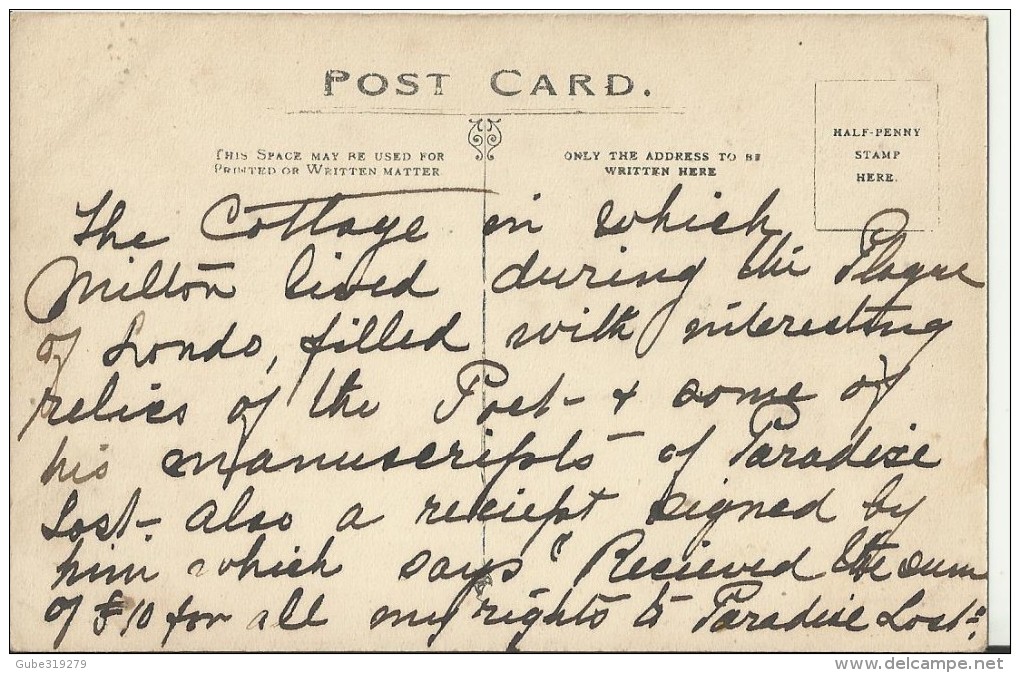 POST CARD.
THIS SPACE MAY BE USED FOR
PRINTED OR WRITTEN MATTER
ONLY THE ADDRESS TO BE
WRITTEN HERE
HALF-PENNY
STAMP
HERE.
The Cottage in which
Milton lived during the Plague
of Londo, filled with interesting
relics of the Poet - & some of
his manuscripts of Paradise
Lost - also a reciept signed by
him which says "Recieved the sum
of £10 for all my rights to Paradise Lost".
Gube319279
www.delcampe.net